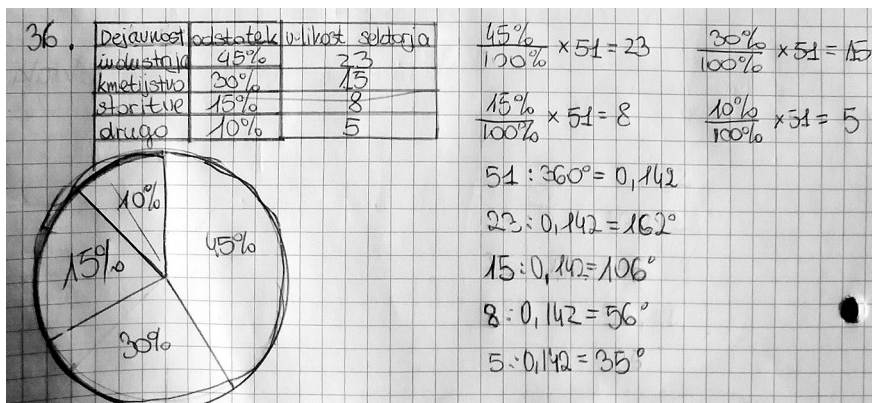 36.
Dejavnost odstatek velikost sektorja
industrija 45% 23
kmetijstvo 30% 15
storitve 15% 8
drugo 10% 5
45%/100% × 51 = 23
30%/100% × 51 = 15
15%/100% × 51 = 8
10%/100% × 51 = 5
51 : 360° = 0,142
23 : 0,142 = 162°
15 : 0,142 = 106°
8 : 0,142 = 56°
5 : 0,142 = 35°
10%
45%
15%
30%